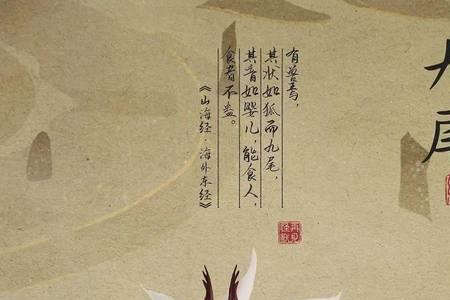 有兽焉，
其状如狐而九尾，
其音如婴儿，能食人，
食者不蛊。
《山海经·海外东经》
九尾
再见
怪兽